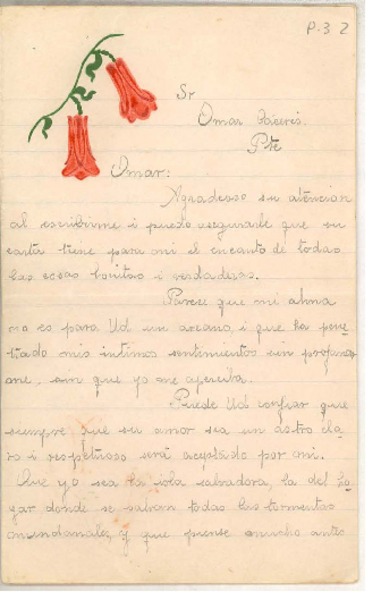 P-32
Sr
Omar Cáceres.
Pte
Omar:
Agradesco su atencion
al escribirme i puedo asegurarle que su
carta tiene para mi el encanto de todas
las cosas bonitas i verdaderas.
Parece que mi alma
no es para Ud un arcano, i que ha pene-
trado mis intimos sentimientos sin profanar
me, sin que yo me aperciba.
Puede Ud confiar que
siempre que su amor sea un astro cla-
ro i respetuoso será aceptado por mi.
Que yo sea la isla salvadora, la del ho-
gar donde se salvan todas las tormentas
mundanales, y que piense mucho ante